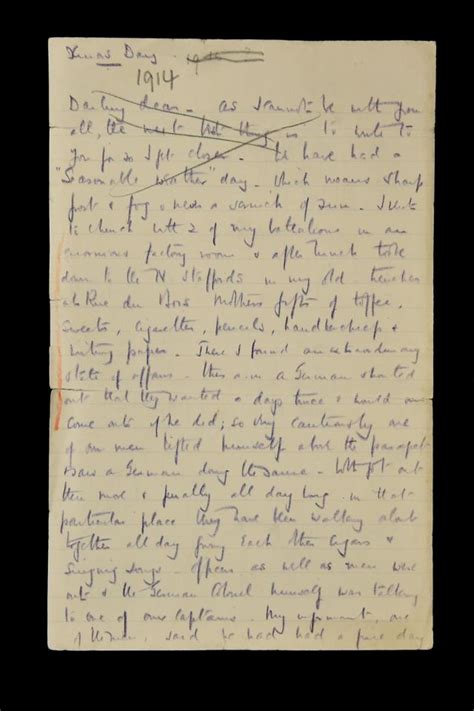 Xmas Day.
1914
Darling dear - as I cannot be with you
all, the next best thing is to write to
you for so I get closer. We have had a
"Seasonable weather" day - which means sharp
frost & fog & never a scrach of sun. I went
to church with 2 of my battalions in an
enormous factory room & after lunch took
down to the N Staffords in my old trenches
at Rue du Bois Mothers gifts of toffee,
sweets, cigarettes, pencils, handkerchiefs &
writing paper. There I found an extraordinary
state of affairs - this a.m. a German shouted
out that they wanted a days truce & would one
come out if he did; so very cautiously one
of our men lifted himself above the parapet
& saw a German doing the same. Both got out
then more & finally all day long in that
particular place they have been walking about
together all day giving each other cigars &
singing songs. Officers as well as men were
out & the German Colonel himself was talking
to one of our Captains. My informant, one
of the men, said he had had a fine day